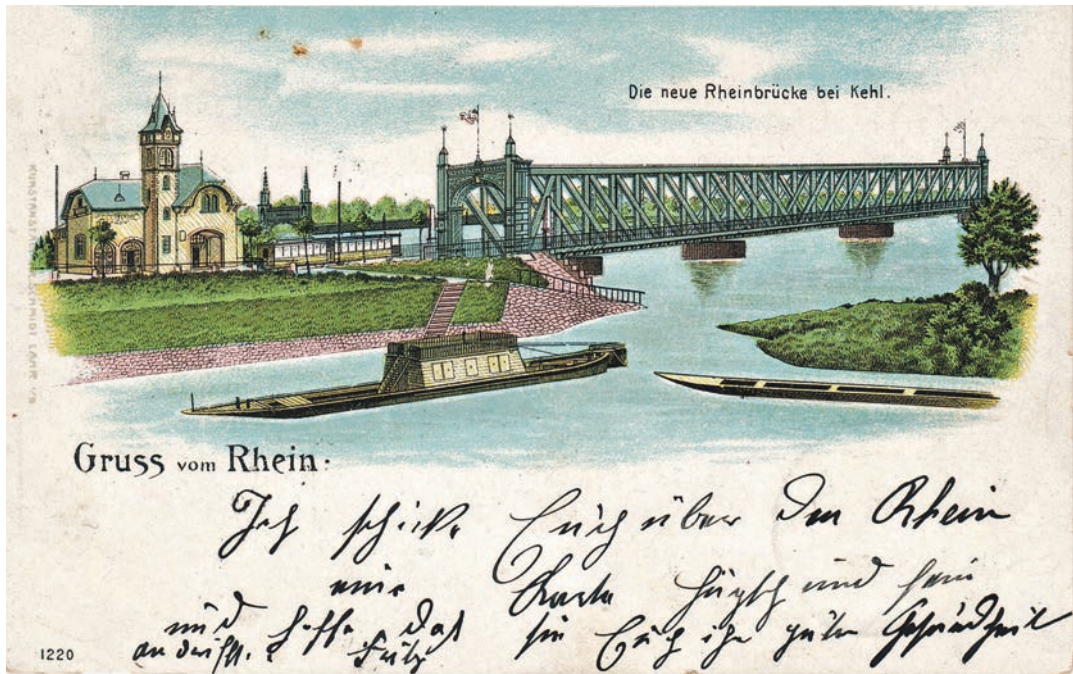 Die neue Rheinbrücke bei Kehl.
KUNSTANSTALT SCHMIDT LAHR
Gruss vom Rhein.
Ich schicke Euch über den Rhein
eine Karte hübsch und fein
und hoffe das sie Euch in guter Gesundheit
andrifft. Fritz
1220